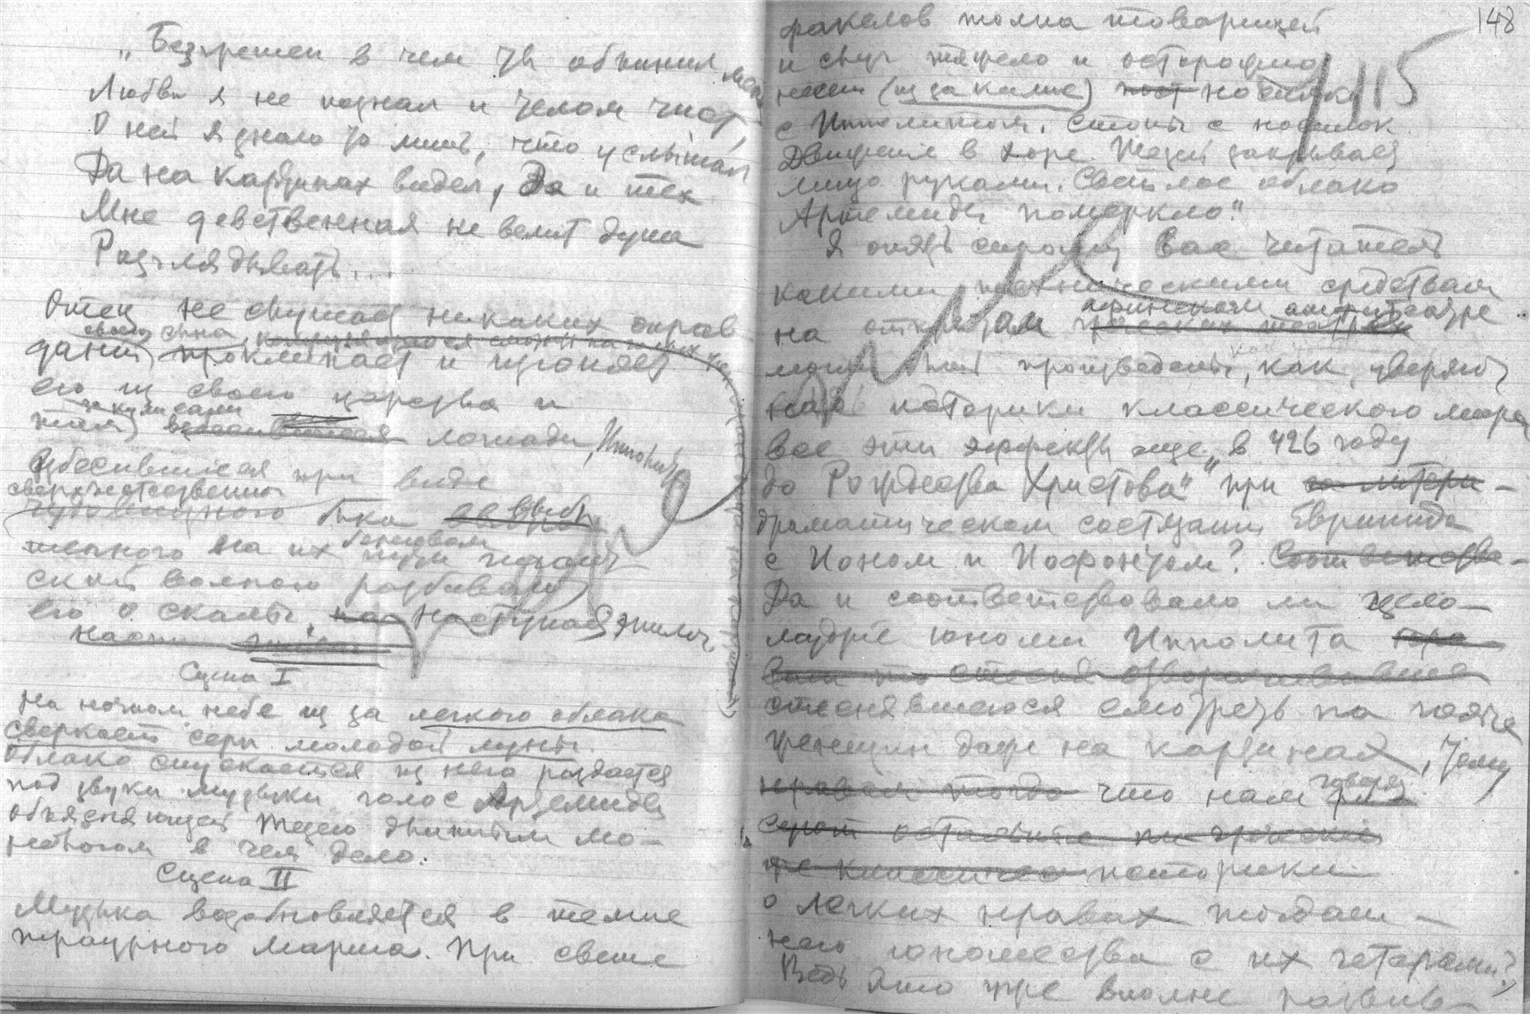 „Безгрешен в чем ты обвинил меня
Любви я не познал и челом чист,
О ней я знаю то лишь, что услышал
Да на картинах видел, Да и тех
Мне девственная не велит душа
Разглядывать...
Отец не слушает никаких оправ
своего сына
даний проклинает и изгоняет
его из своего царства и
за кулисами
там лошади, Ипполита
взбесившиеся при виде
сверхъестественного
чудовищного быка
на их
волною разбивают
его о скалы, наступает эпилог.
Сцена I
На ночном небе из за легкого облака
сверкает серп молодой луны.
облако спускается из него раздается
под звуки музыки голос Артемиды
объясняющей Тезею длинным мо-
нологом в чем дело.
Сцена II
Музыка возобновляется в темпе
траурного марша. При свете
148
факелов толпа товарищей
и слуг тяжело и осторожно
несет (из за кулис) носилки
115
с Ипполитом. Стоны с носилок.
Движение в хоре. Тезей закрывает
лицо руками. Светлое облако
Артемиды померкло."
Я опять спрошу Вас читатель
какими техническими средствами
афинском амфитеатре
на открытом греческих театрах
могли быть произведены, как уверяют
нас историки классического мира
все эти эффекты еще „в 426 году
до Рождества Христова" при
драматическом состязании Еврипида
с Ионом и Иофонтом? Соответство-
Да и соответствовало ли цело-
мудрие юноши Ипполита
стеснявшегося смотреть на голых
женщин даже на картинах, тому
говорят
нравам тогда что нам
историки
о легких нравах тогдаш-
него юношества с их гетерами?
Ведь это уже вполне развив-